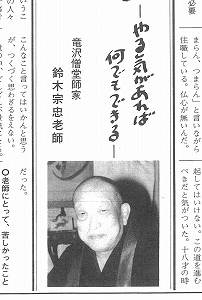 必要
まらん、つまらん」と言いながら
住職している。仏心が無いんだ。
起してはいけない。この道を進む
べきだと気がついた。十八才の時
―やる気があれば
何でもできる―
竜沢僧堂師家
鈴木宗忠老師
こんなこと言ってはいかんと思う
が、つくづく思わざるをえない。
だった。
〇老師にとって、苦しかったこと